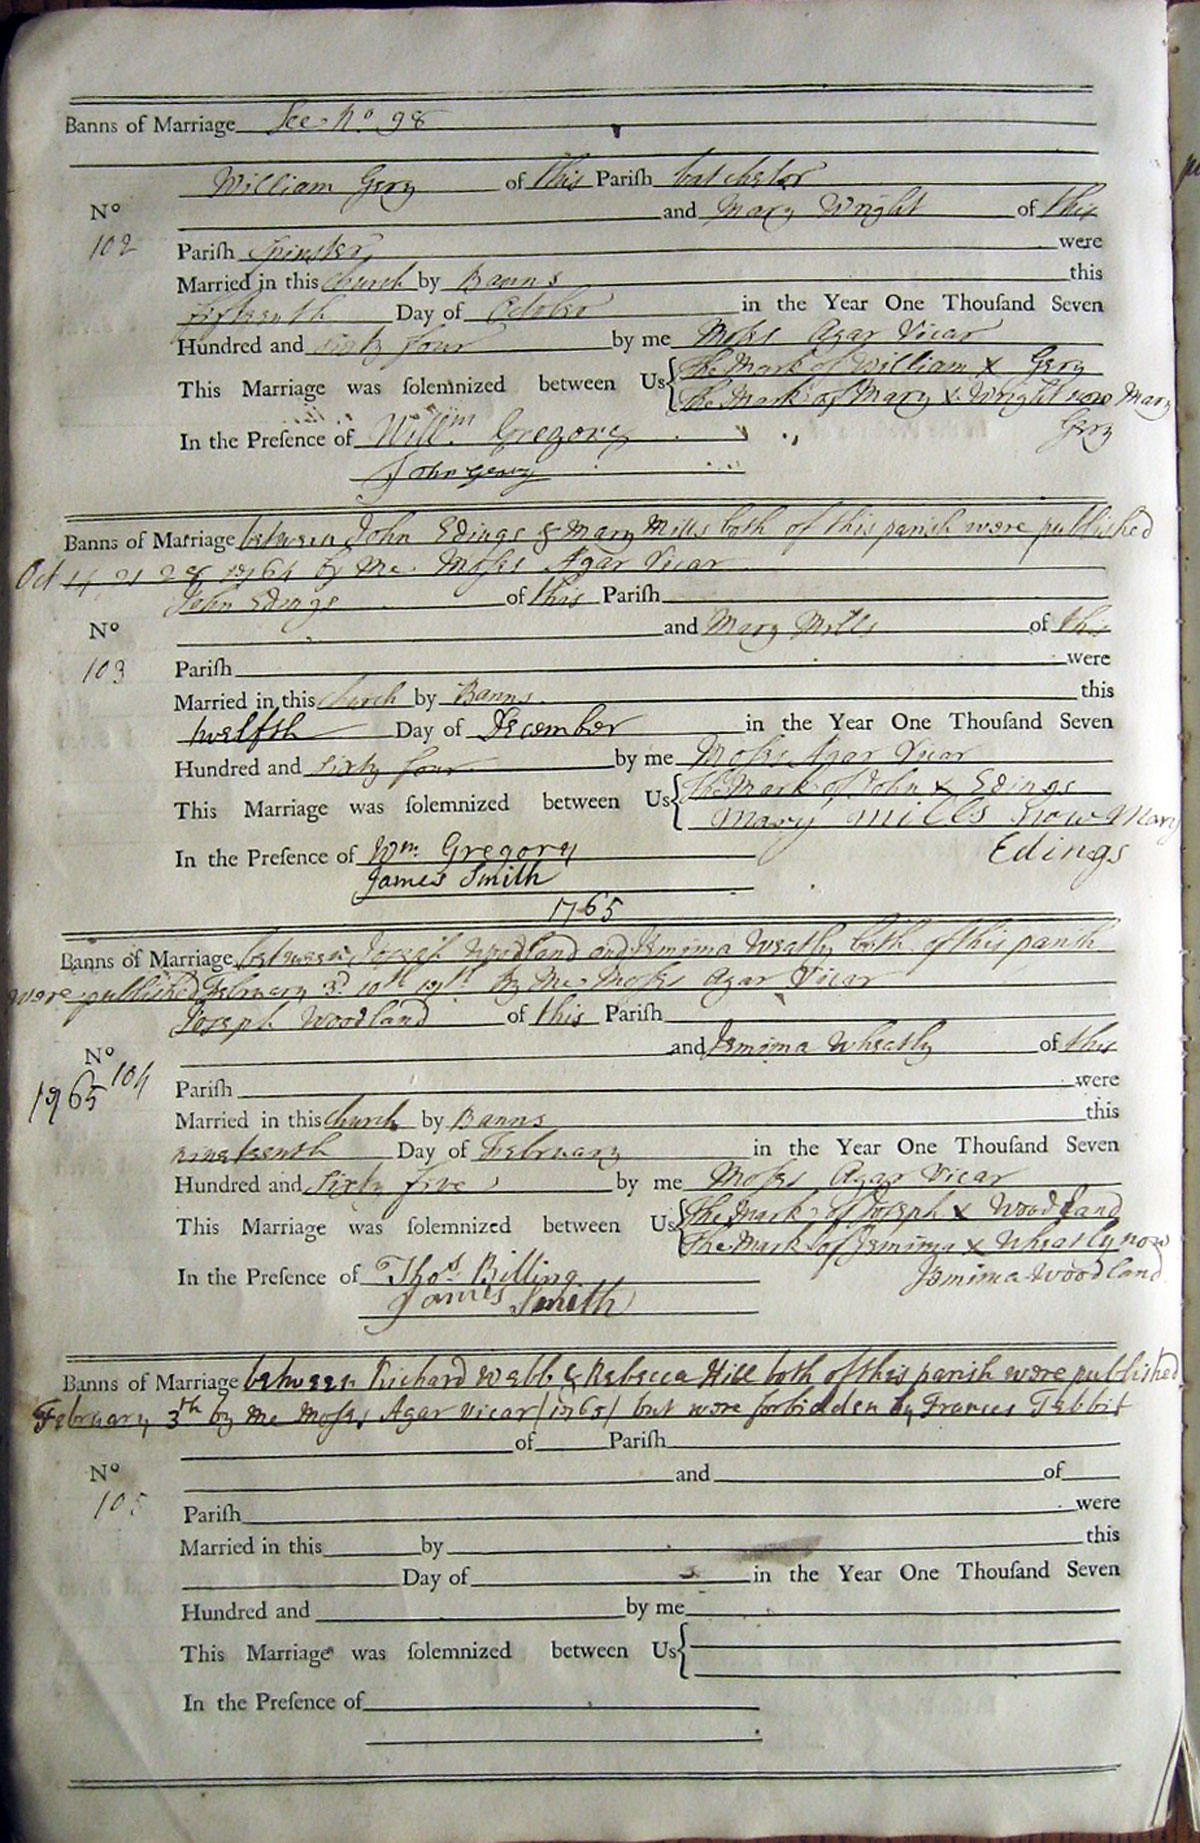 Banns of Marriage See No 98
William Gery of this Pariſh batchelor
No and Mary Wright of this
102 Pariſh Spinster were
Married in this Church by Banns this
fifteenth Day of October in the Year One Thouſand Seven
Hundred and sixty four by me Moses Agar Vicar
This Marriage was ſolemnized between Us The Mark of William x Gery
The Mark of Mary x Wright now Mary
Gery
In the Preſence of Willm Gregory
John Geary
Banns of Marriage between John Edings & Mary Mills both of this parish were published
Oct 14 21 28 1764 by me Moses Agar Vicar
John Edings of this Pariſh
No and Mary Mills of this
103 Pariſh were
Married in this Church by Banns this
twelfth Day of December in the Year One Thouſand Seven
Hundred and sixty four by me Moses Agar Vicar
This Marriage was ſolemnized between Us The Mark of John x Edings
Mary Mills now Mary
Edings
In the Preſence of Wm Gregory
James Smith
1765
Banns of Marriage between Joseph Woodland and Jemima Weatly both of this parish
were published February 3d 10th 17th By me Moses Agar Vicar
Joseph Woodland of this Pariſh
No and Jemima Wheatly of this
1765 104 Pariſh were
Married in this Church by Banns this
nineteenth Day of February in the Year One Thouſand Seven
Hundred and Sixty five by me Moses Agar Vicar
This Marriage was ſolemnized between Us The Mark of Joseph x Woodland
The Mark of Jemima x Wheatly now
Jemima Woodland
In the Preſence of Thos Billing
James Smith
Banns of Marriage between Richard Webb & Rebecca Hill both of this parish were published
February 3th by me Moses Agar Vicar (1765) but were forbidden by Frances Tebbit
of Pariſh
No and of
105 Pariſh were
Married in this by this
Day of in the Year One Thouſand Seven
Hundred and by me
This Marriage was ſolemnized between Us
In the Preſence of